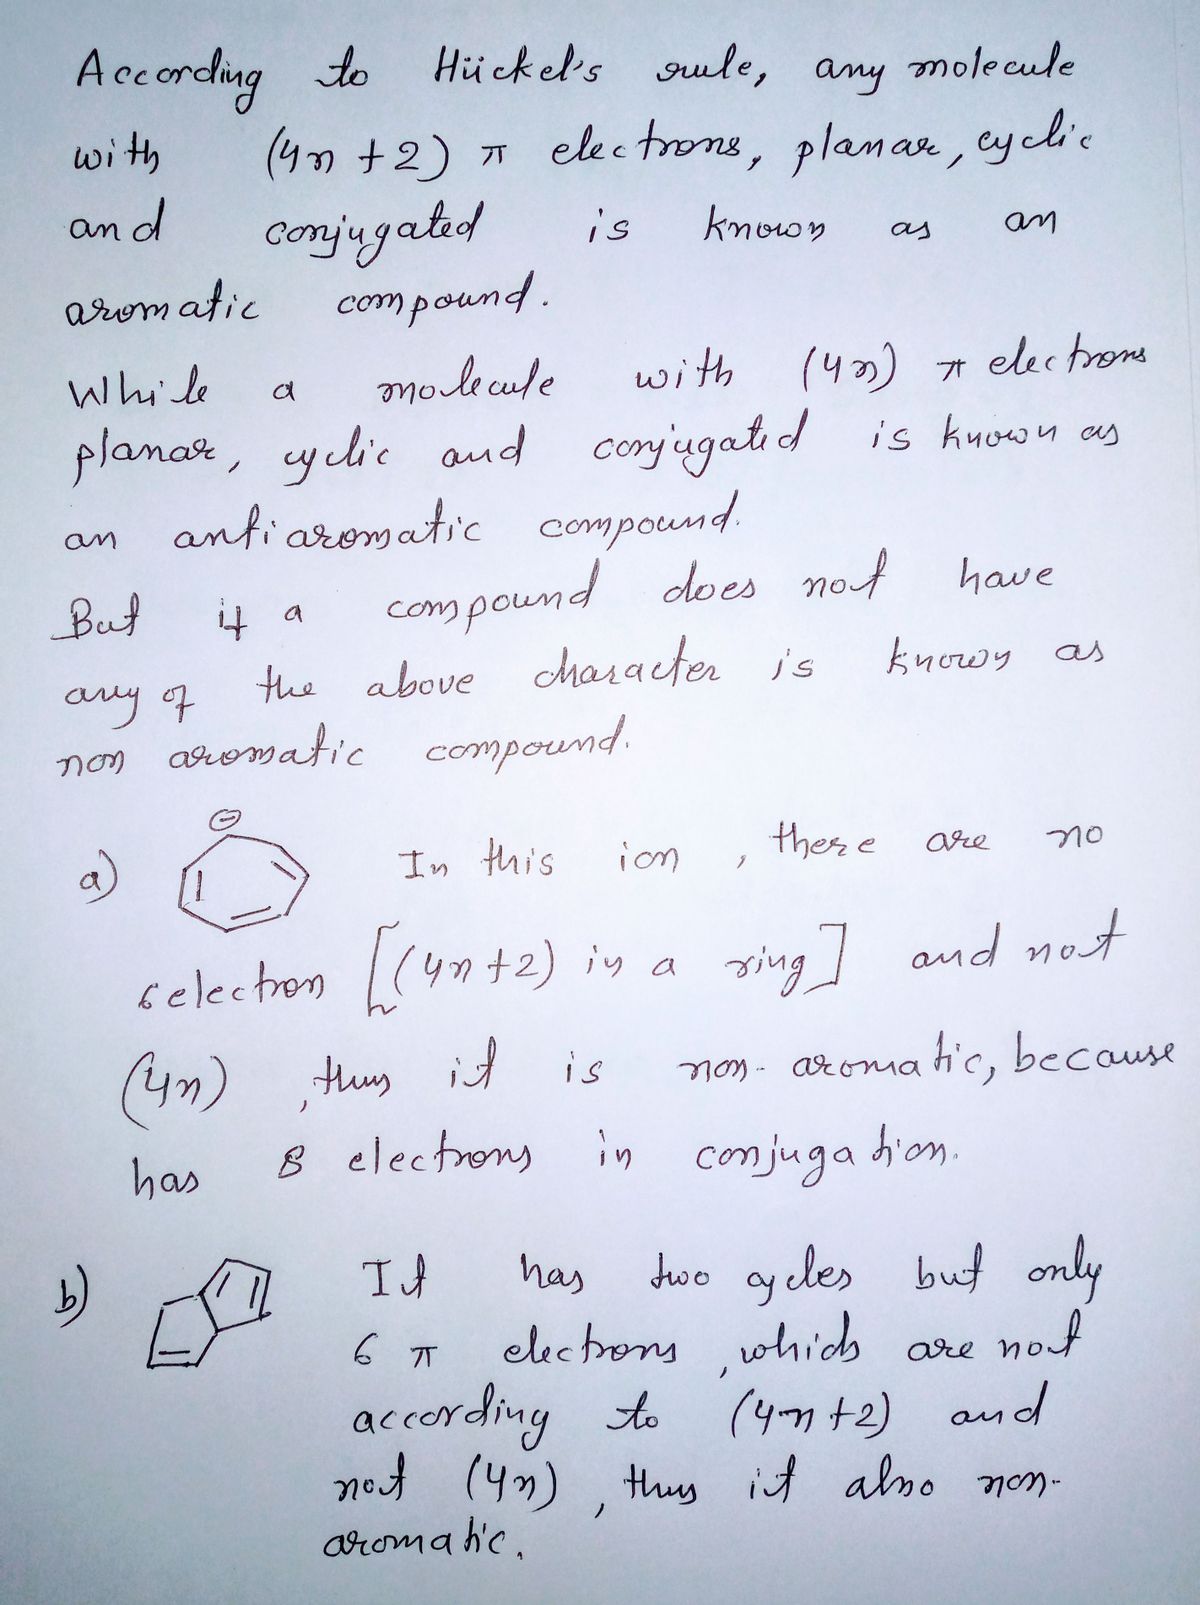 According to Hückel's rule, any molecule
with (4n+2) π electrons, planar, cyclic
and conjugated is known as an
aromatic compound.
While a molecule with (4n) π electrons
planar, cyclic and conjugated is known as
an antiaromatic compound.
But if a compound does not have
any of the above character is known as
non aromatic compound.
a) ⊖ In this ion, there are no
6 electron [(4n+2) in a ring] and not
(4n), thus it is non-aromatic, because
has 8 electrons in conjugation.
b) It has two cycles but only
6 π electrons, which are not
according to (4n+2) and
not (4n), thus it also non-
aromatic.